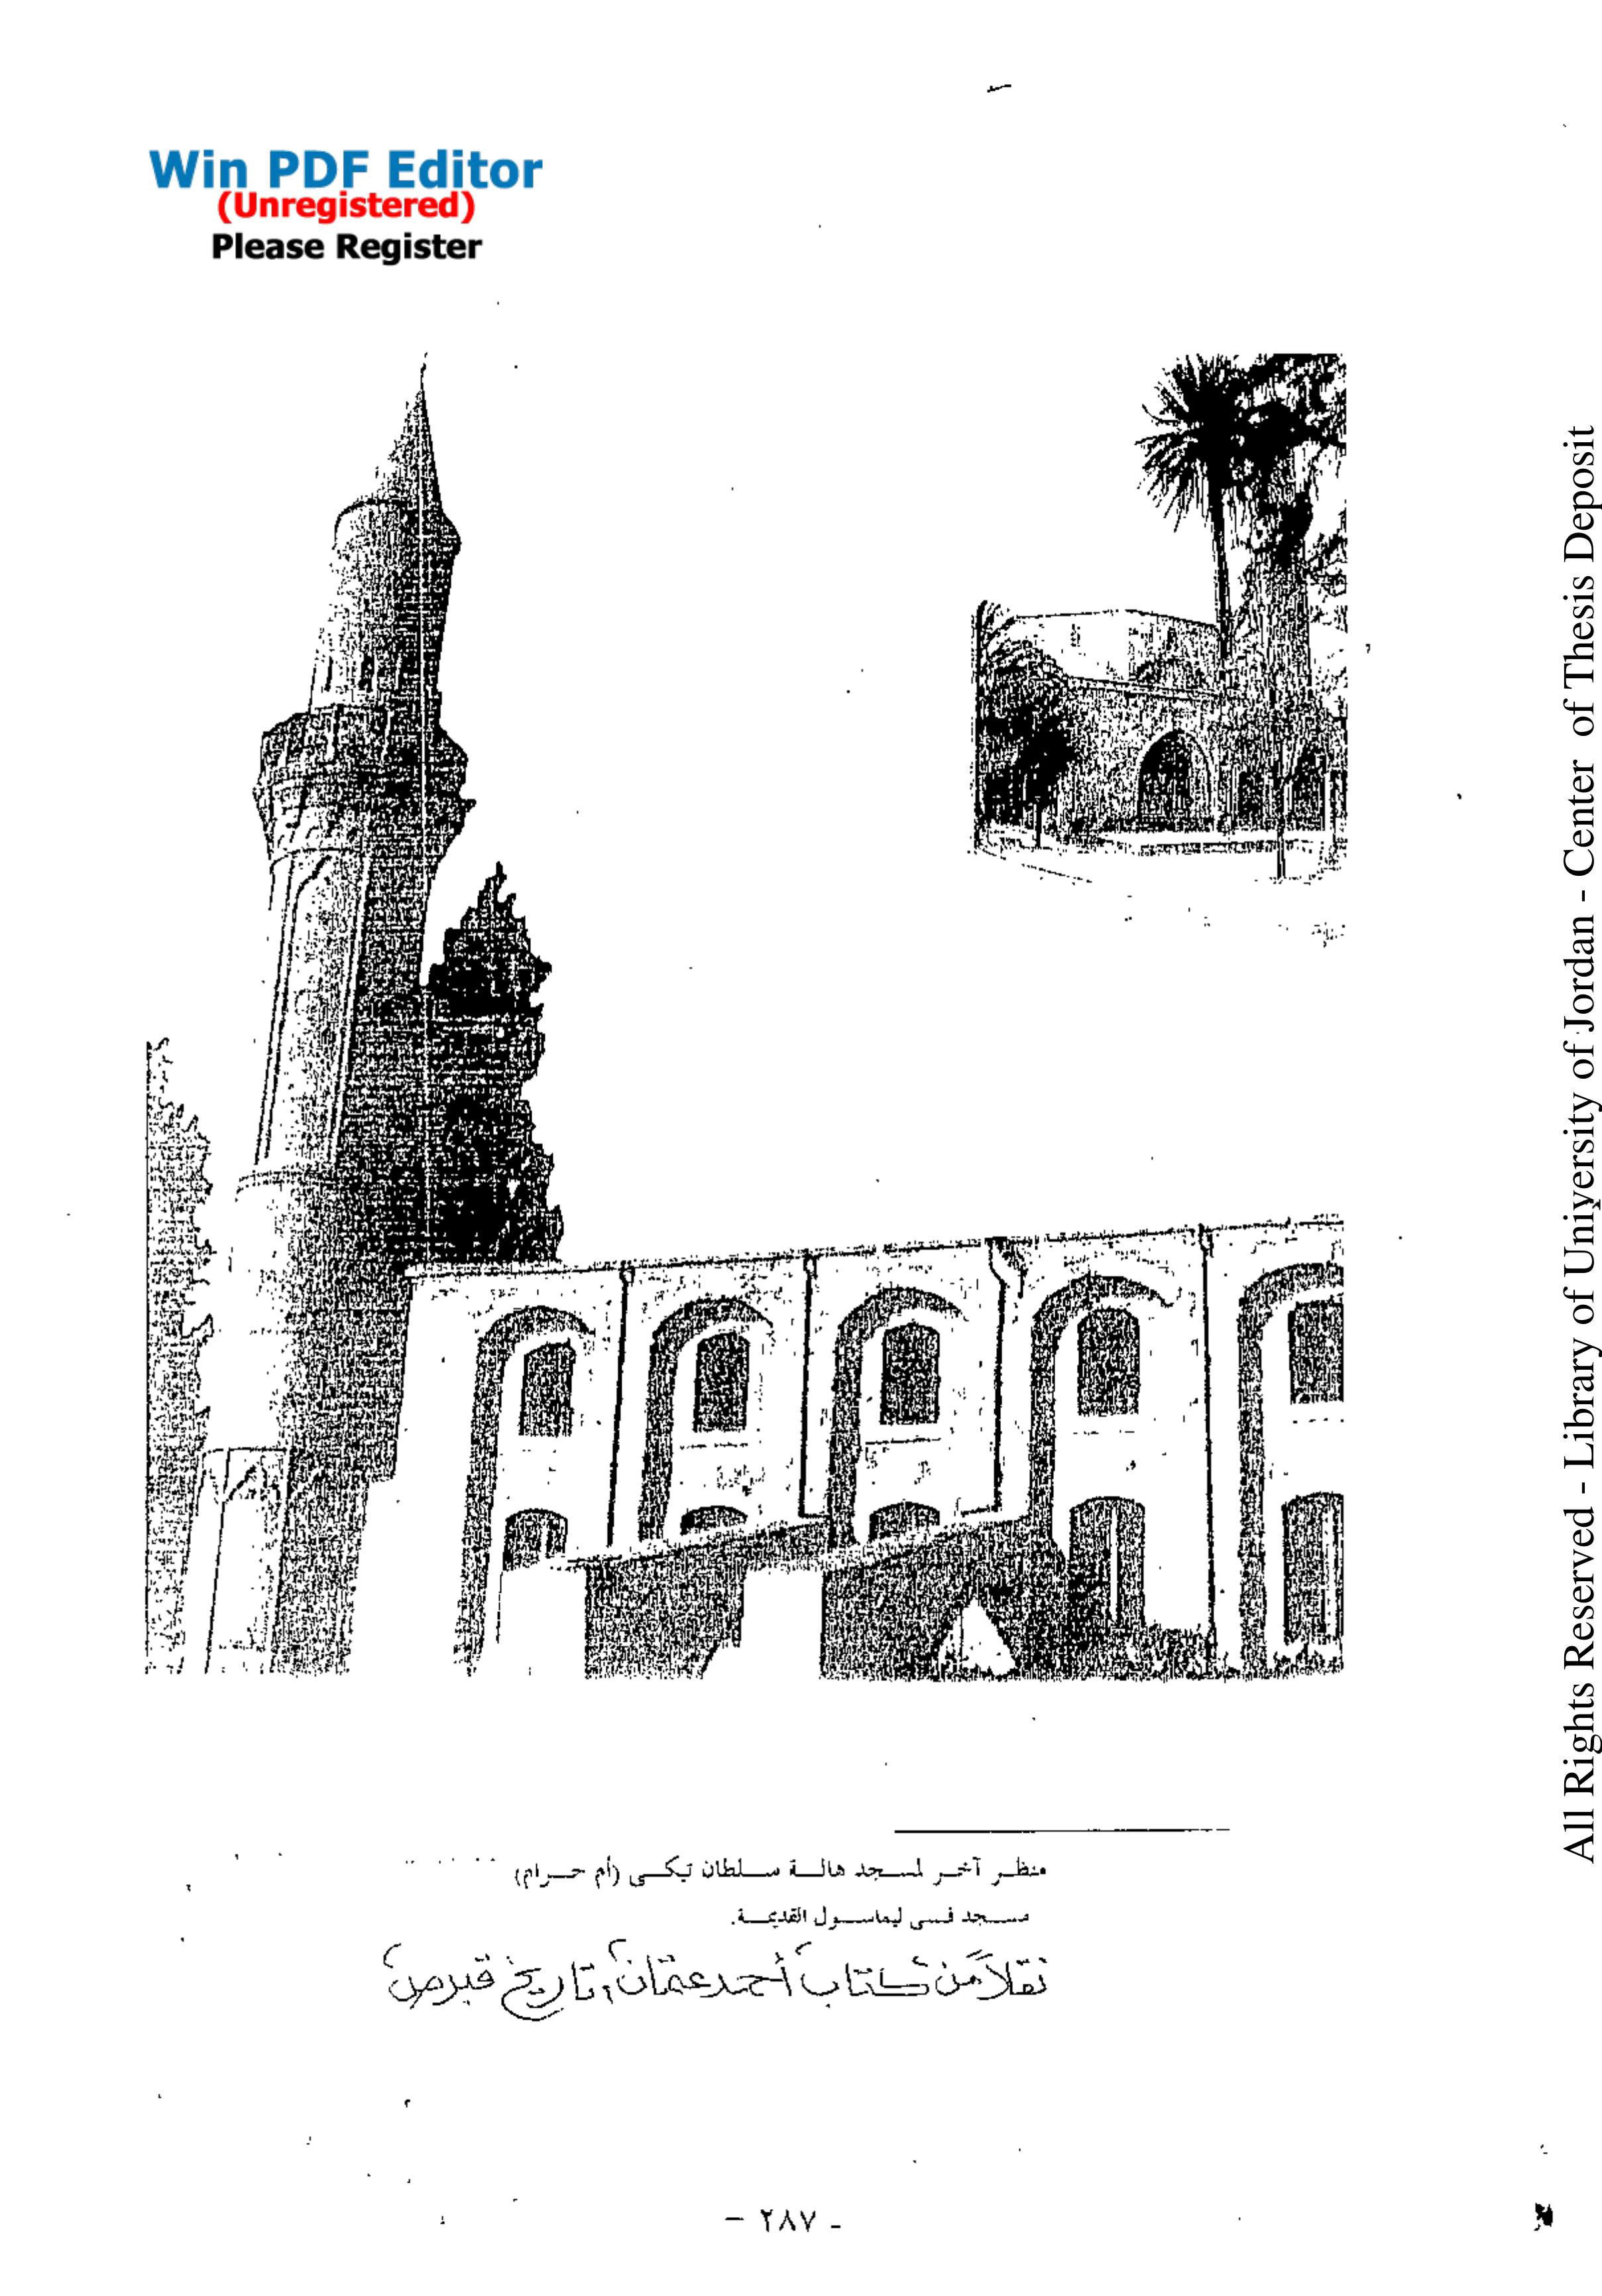 Win PDF Editor
(Unregistered)
Please Register
منظر آخر لمسجد هالة سلطان تيكى (أم حرام)
مسجد فى ليماسول القديمة.
نقلاً من كتاب أحمد عثمان، تاريخ قبرص
- ٢٨٧ -
All Rights Reserved - Library of University of Jordan - Center of Thesis Deposit